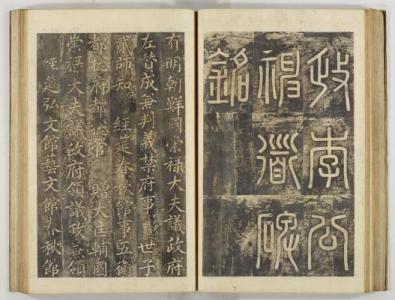 政李公
神道碑
銘
有明朝鮮國崇祿大夫議政府
左贊成兼判義禁府事 世子
貳師知 經筵春秋館事五衛
都摠府都摠管 贈大匡輔國
崇祿大夫議政府領議政兼領
經筵弘文館藝文館春秋館